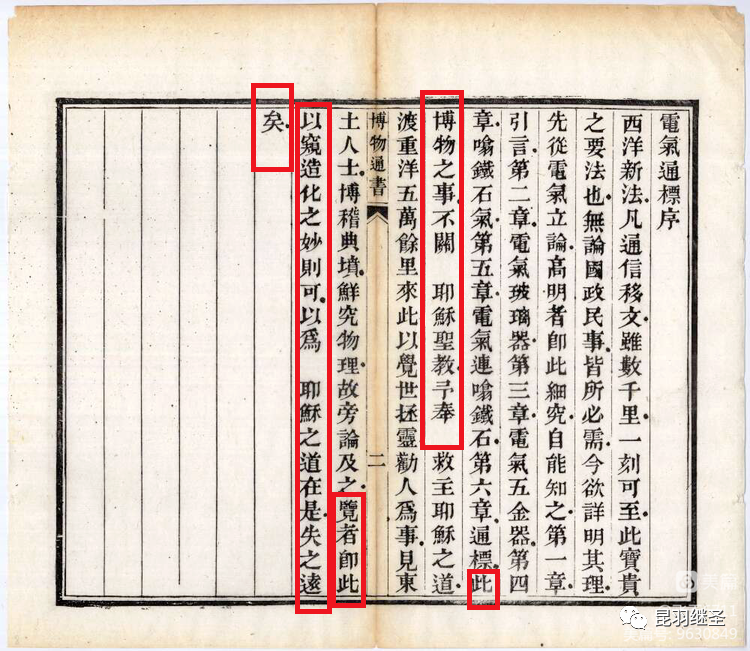 電氣通標序
西洋新法凡通信移文雖數千里一刻可至此寶貴
之要法也無論國政民事皆所必需今欲詳明其理
先從電氣立論高明者卽此細究自能知之第一章
引言第二章電氣玻璃器第三章電氣五金器第四
章噏鐵石氣第五章電氣連噏鐵石第六章通標此
博物之事不關 耶穌聖教予奉 救主耶穌之道
渡重洋五萬餘里來此以覺世拯靈勸人爲事見東
博物通書 二
土人士博稽典墳鮮究物理故旁論及之覽者卽此
以窺造化之妙則可以爲 耶穌之道在是失之遠
矣
昆羽继圣
9630849